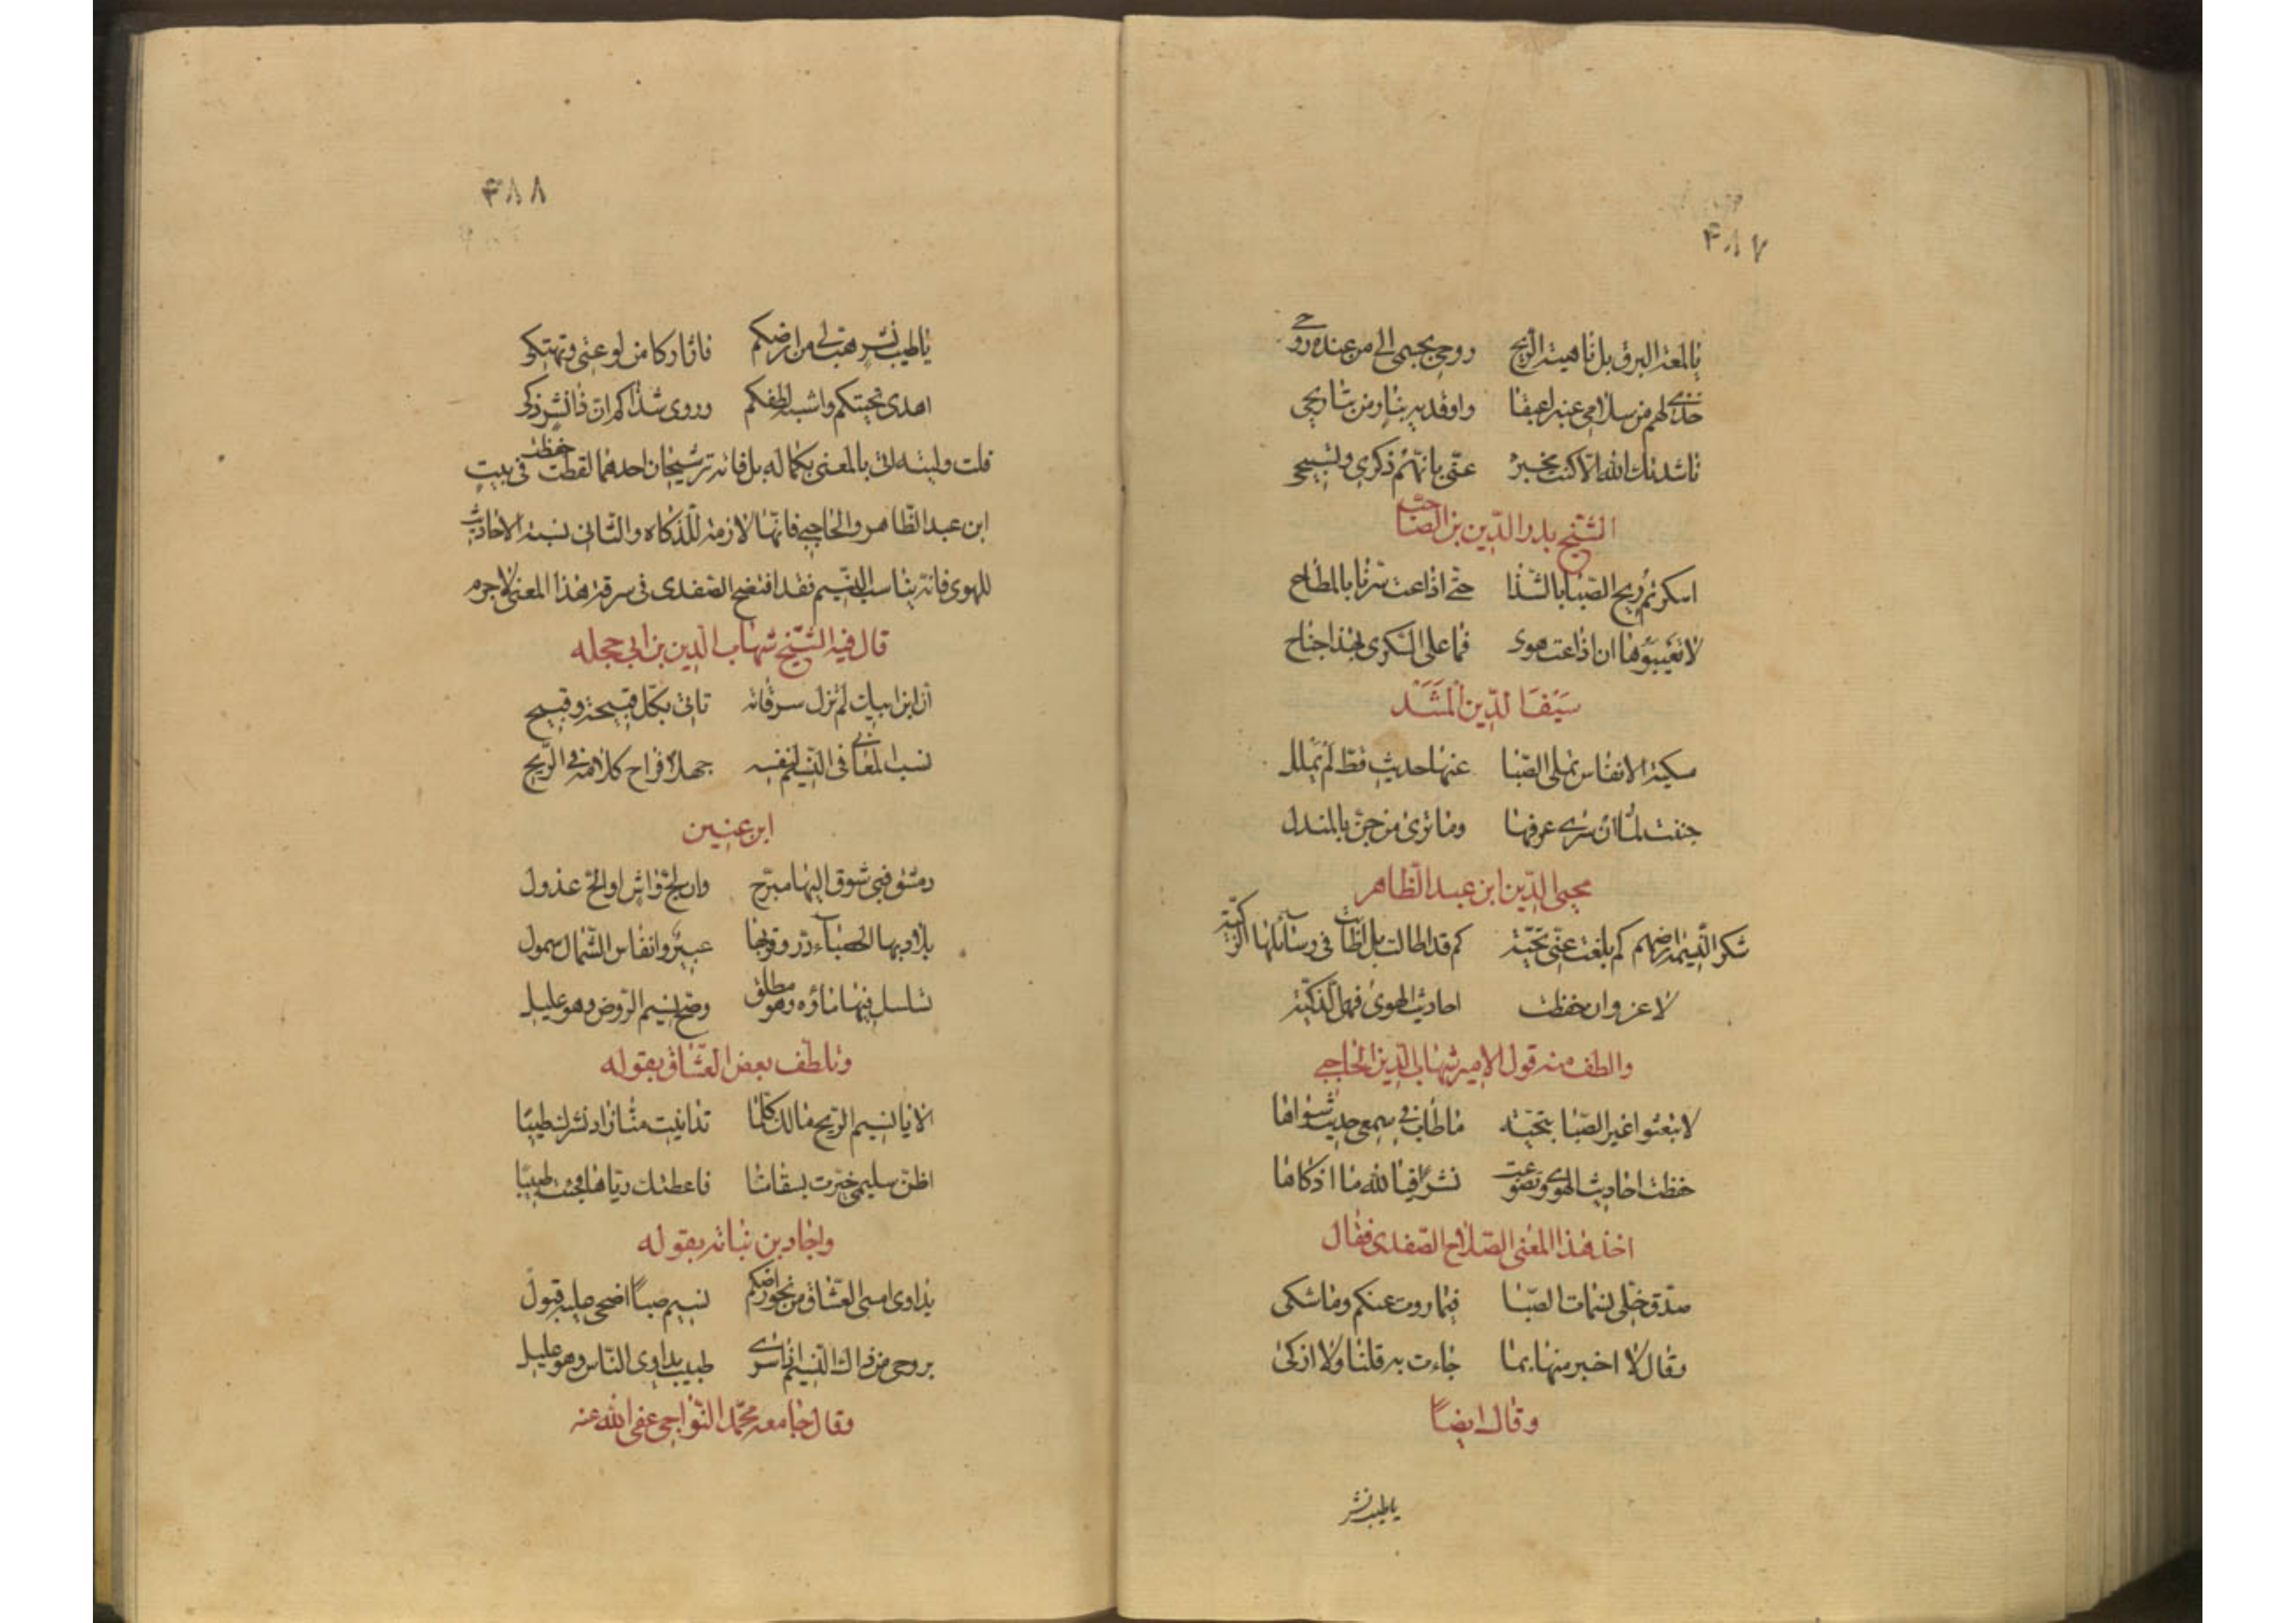 ۴۸۷
يا لمعة البرق بل يا هبة الريح روحى بجسمى الى من عنده روحى
خذى لهم من سلامى عنبرا عبقا واوقديه بنار من تباريحى
ناشدتك الله الا كنت مخبرة عنى بانهم ذكرى وتسبيحى
الشيخ بدر الدين بن الصاحب
اسكرتم ريح الصبا بالشذا حتى اذاعت سرنا بالمطاح
لا تعيبوها ان اذاعت هوى فما على السكرى بهذا جناح
سيف الدين المشد
مسكية الانفاس تملى الصبا عنها حديث قط لم يملل
جننت لما ان سرى عرفها وما نرى من جن بالمندل
محيى الدين ابن عبد الظاهر
شكرا لنسيمة ارضهم كم بلغت عنى تحية كم قد اطالت بل اطابت فى رسائلها الزكية
لا غرو ان حفظت احاديث الهوى فهى الذكية
والطف منه قول الامير شهاب الدين الحاجبى
لا تبعثوا غير الصبا بتحية ما طاب فى سمعى حديث سواها
حفظت احاديث الهوى وتضوعت نشرا فيالله ما اذكاها
اخذ هذا المعنى الصلاح الصفدى فقال
صدق خلى نسمات الصبا فيما روت عنكم وما شكى
وقال لا اخبر منها بما جاءت به قلنا ولا ازكى
وقال ايضا
يا طيب نشر
۴۸۸
يا طيب نشر هب لى من ارضكم فاثار كامن لوعتى وتهتكى
اهدى تحيتكم واشبه لطفكم وروى شذاكم ان ذا نشر ذكى
قلت وليته اتى بالمعنى بكماله بل فاته ترشيحان احدهما لقطة حفظت فى بيت
ابن عبد الظاهر والحاجبى فانها لازمة للذكاه والثانى نسبة الاحاديث
للهوى فانه يناسب النسيم فقد افتضح الصفدى فى سرقة هذا المعنى لا جرم
قال فيه الشيخ شهاب الدين بن ابى حجله
ان ابن ايبك لم تزل سرقاته تاتى بكل قبيحة وقبيح
نسب المعانى فى النسيم لنفسه جهلا فراح كلامه فى الريح
ابن عنين
دمشق فبى شوق اليها مبرح وان لج واش او الح عذول
بلاد بها الحصباء در وتربها عبير وانفاس الشمال شمول
تسلسل فيها ماؤه وهو مطلق وصح نسيم الروض وهو عليل
وتلطف بعض العشاق بقوله
الا يا نسيم الريح مالك كلما تدانيت منا زاد نشرك طيبا
اظن سليمى خبرت بسقامنا فاعطتك رياها فجئت طبيبا
واجاد بن نباته بقوله
يداوى اسى العشاق من نحو ارضكم نسيم صبا اضحى عليه قبول
بروحى من ذاك النسيم اذا سرى طبيب يداوى الناس وهو عليل
وقال جامعه محمد النواجى عفى الله عنه